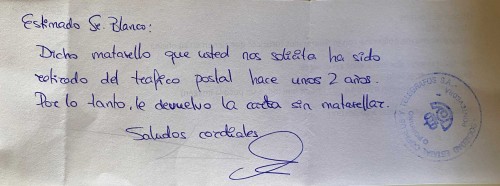 Estimado Sr. Blanco:
Dicho matasello que usted nos solicita ha sido
retirado del trafico postal hace unos 2 años.
Por lo tanto, le devuelvo la carta sin matasellar.
Saludos cordiales